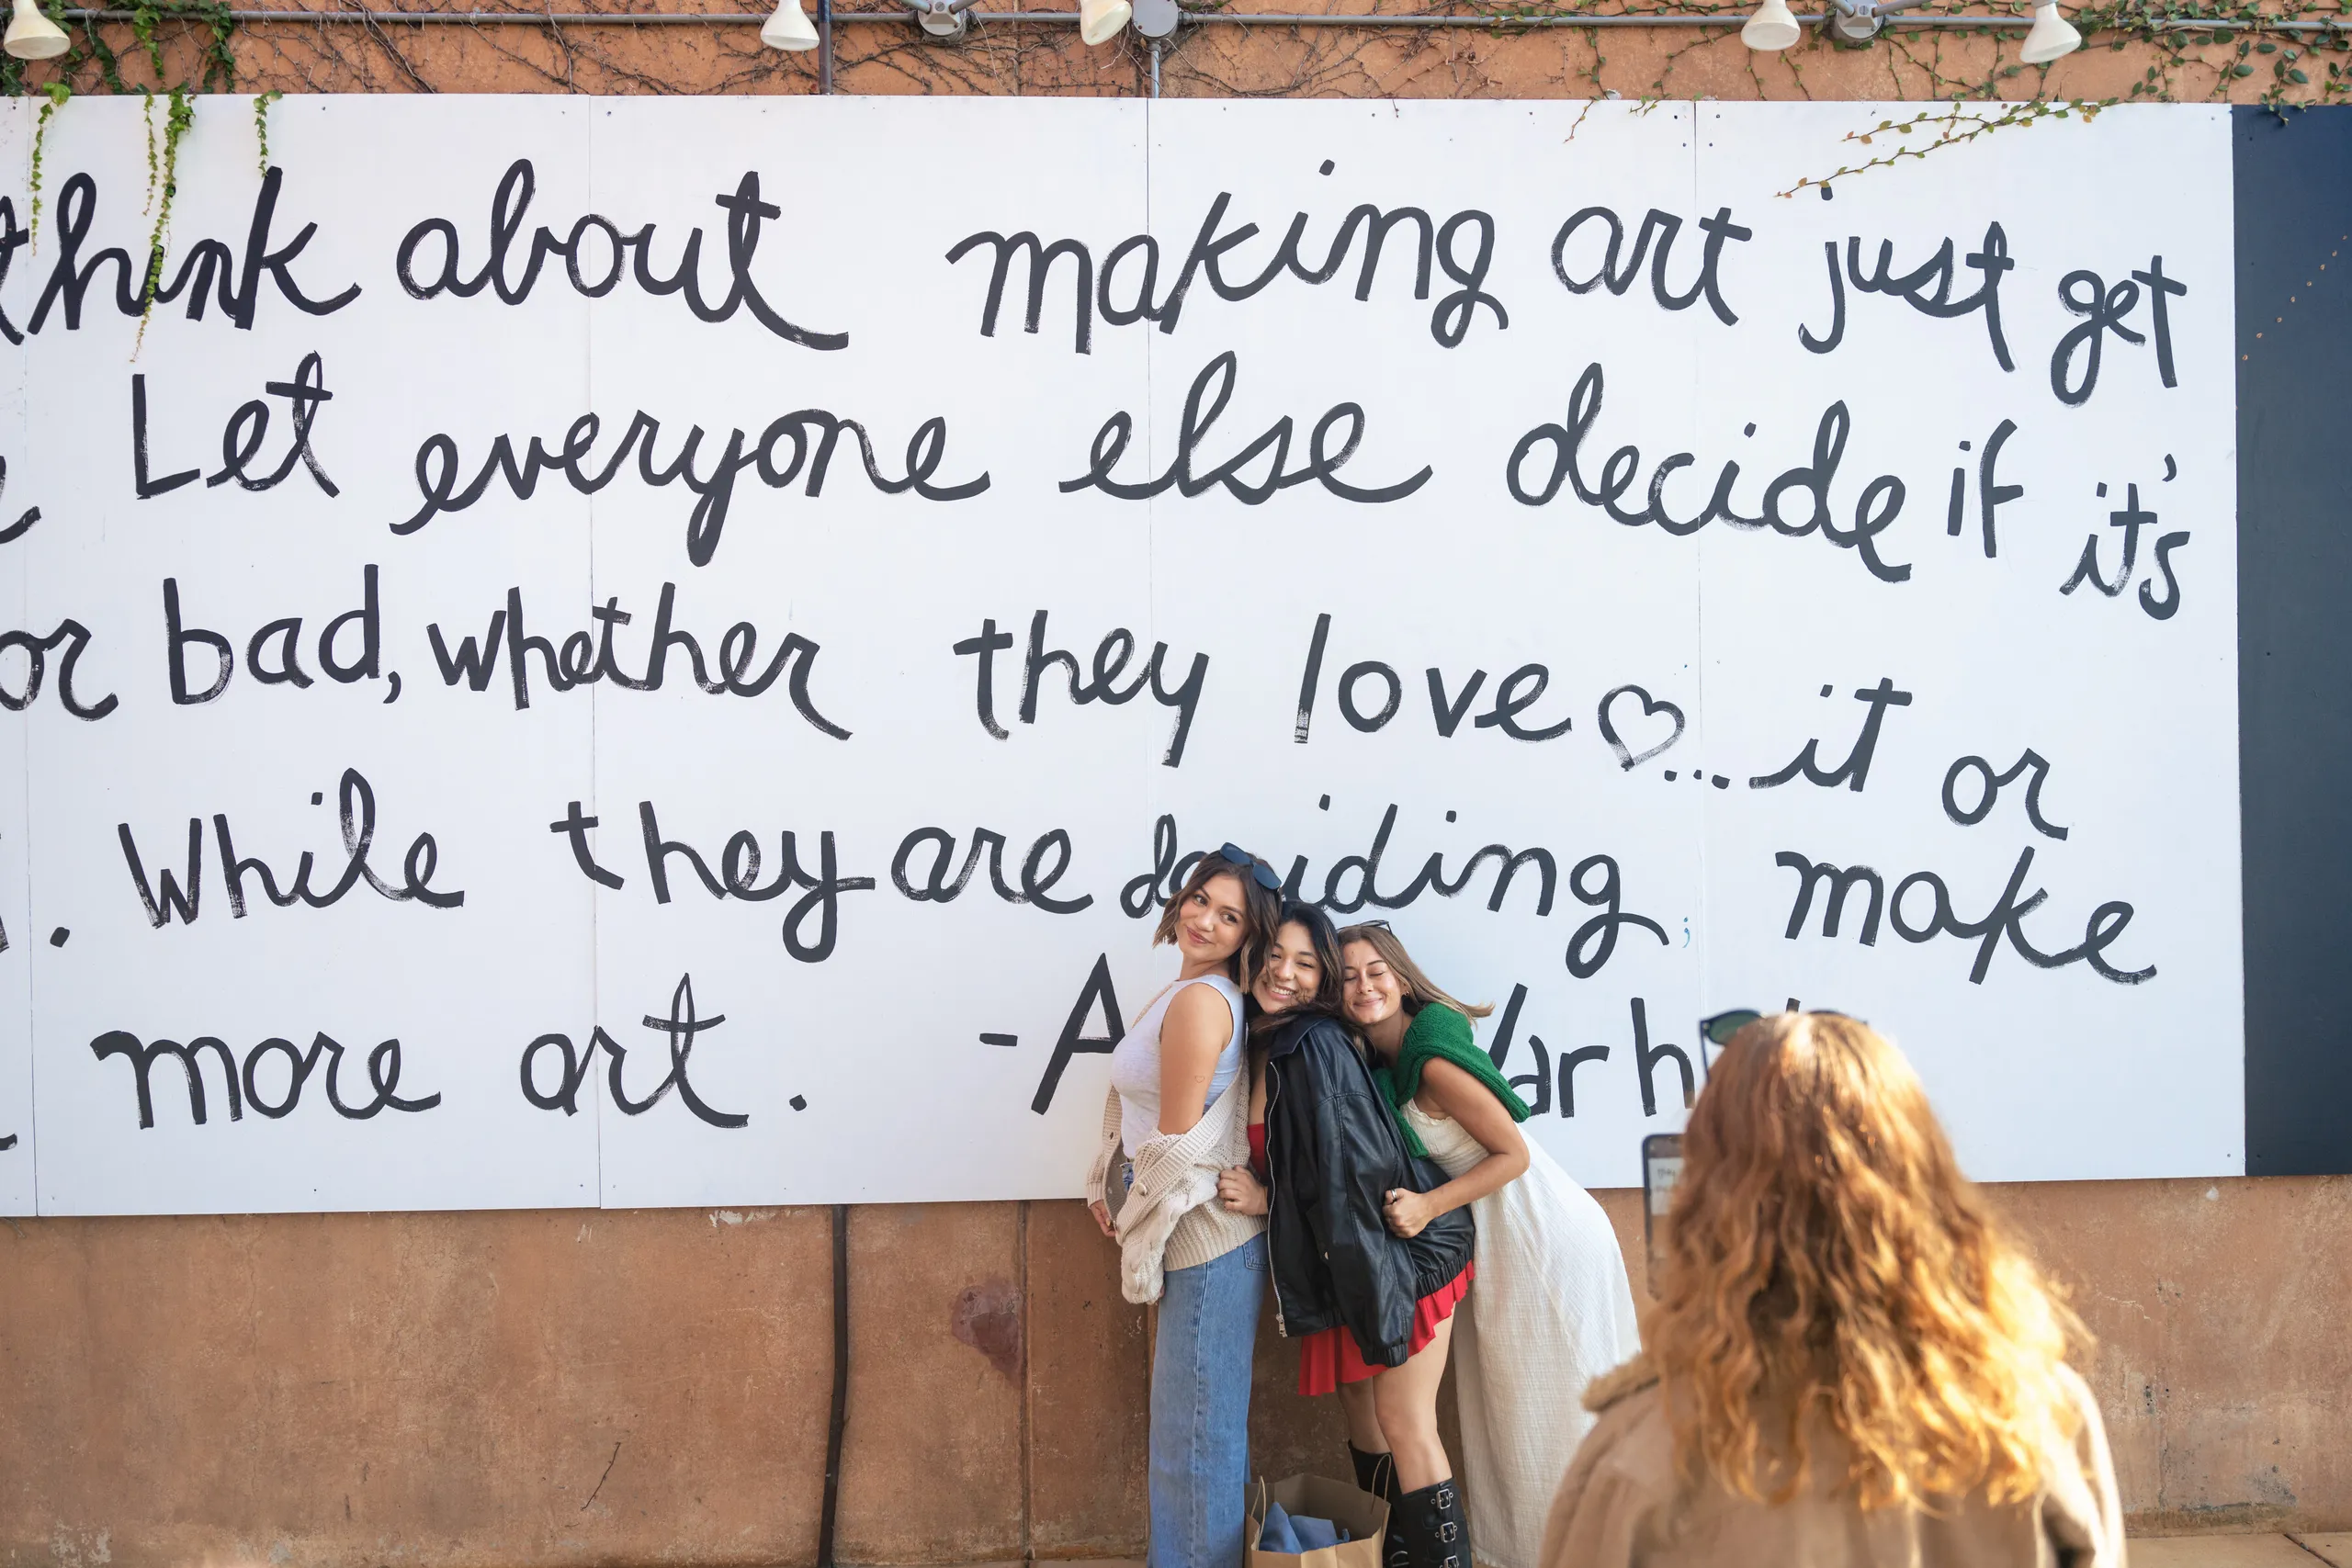 think about making art just get
Let everyone else decide if it's
or bad, whether they love ♡... it or
. While they are deciding, make
more art. - A Warh